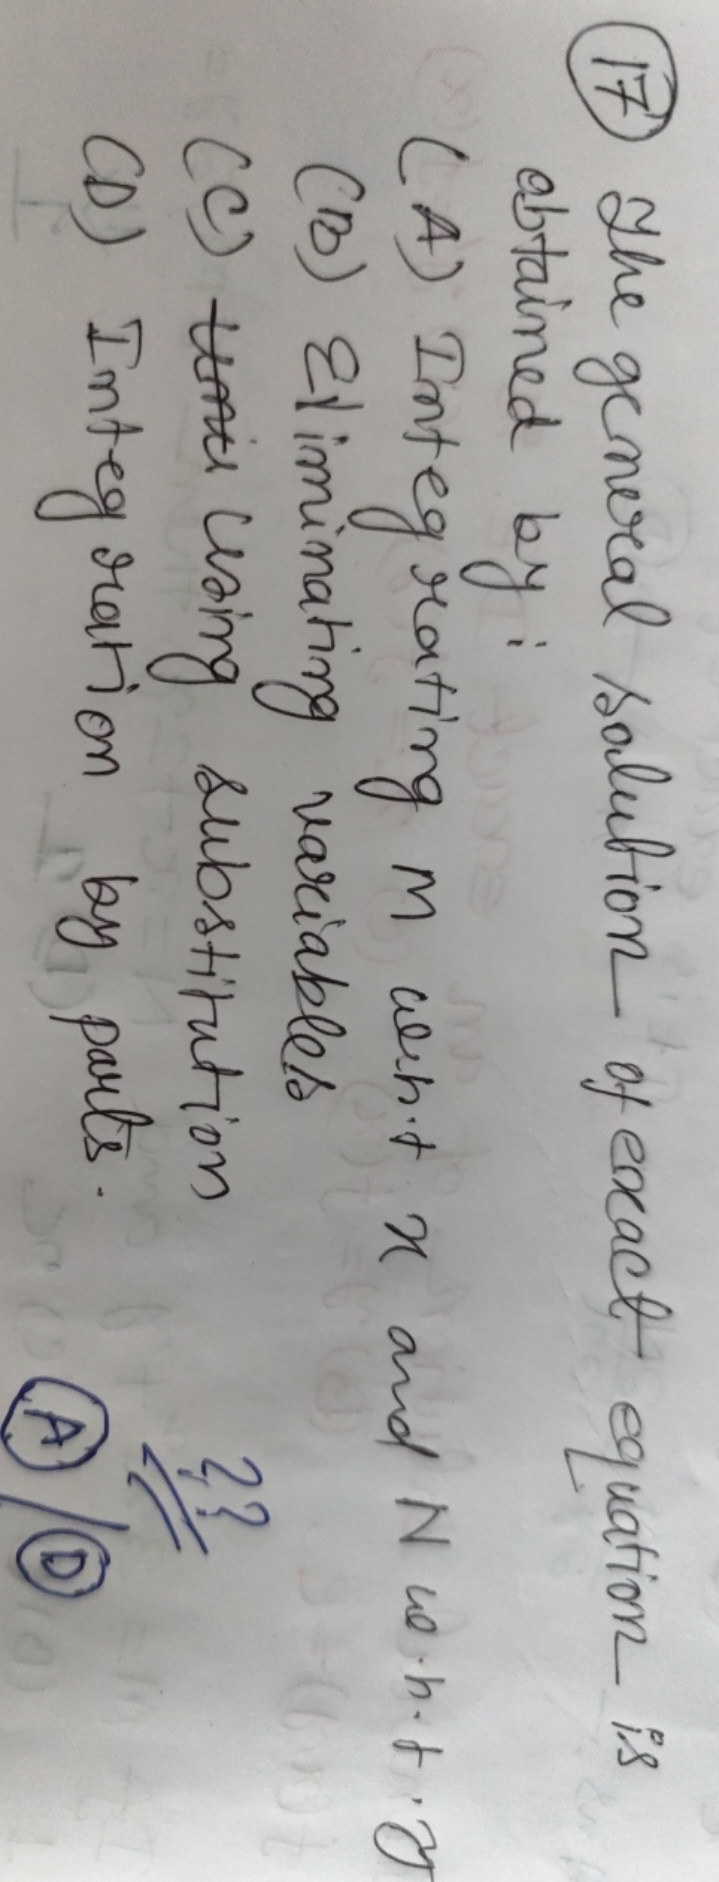 17 The general solution of exact equation is
obtained by :
(A) Integrating M w.r.t x and N w.r.t. y
(B) Eliminating variables
(C) using substitution
(D) Integration by parts.
??
A / D